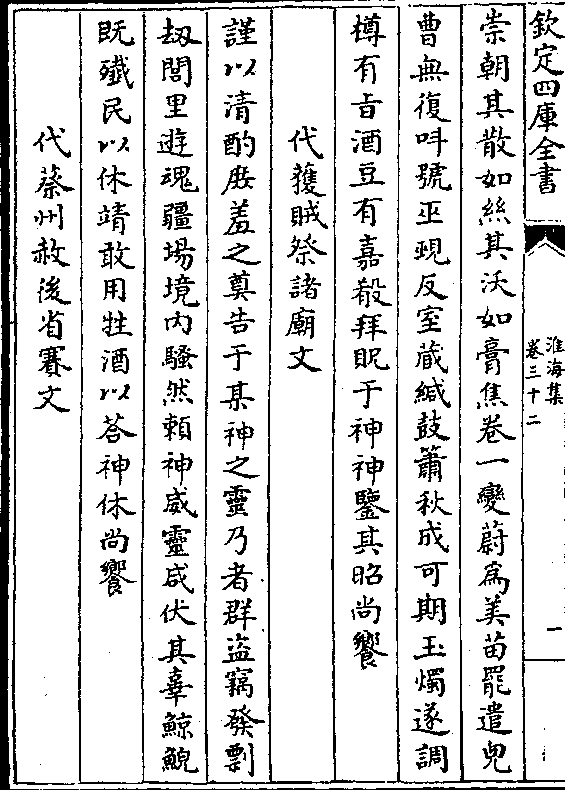 欽定四庫全書
淮海集
卷三十二
一
崇朝其散如絲其沃如膏焦卷一變蔚為美苗罷遣兒
曹無復呌號巫覡反室蔵緘鼓簫秋成可期玉燭遂調
樽有㫖酒豆有嘉殽拜貺于神神鑒其昭尚饗
代獲賊祭諸廟文
謹以清酌庶羞之奠告于某神之靈乃者群盜竊發剽
刼閭里遊魂疆埸境内騷然頼神威靈咸伏其辜鯨鯢
既殱民以休靖敢用牲酒以荅神休尚饗
代蔡州赦後省賽文